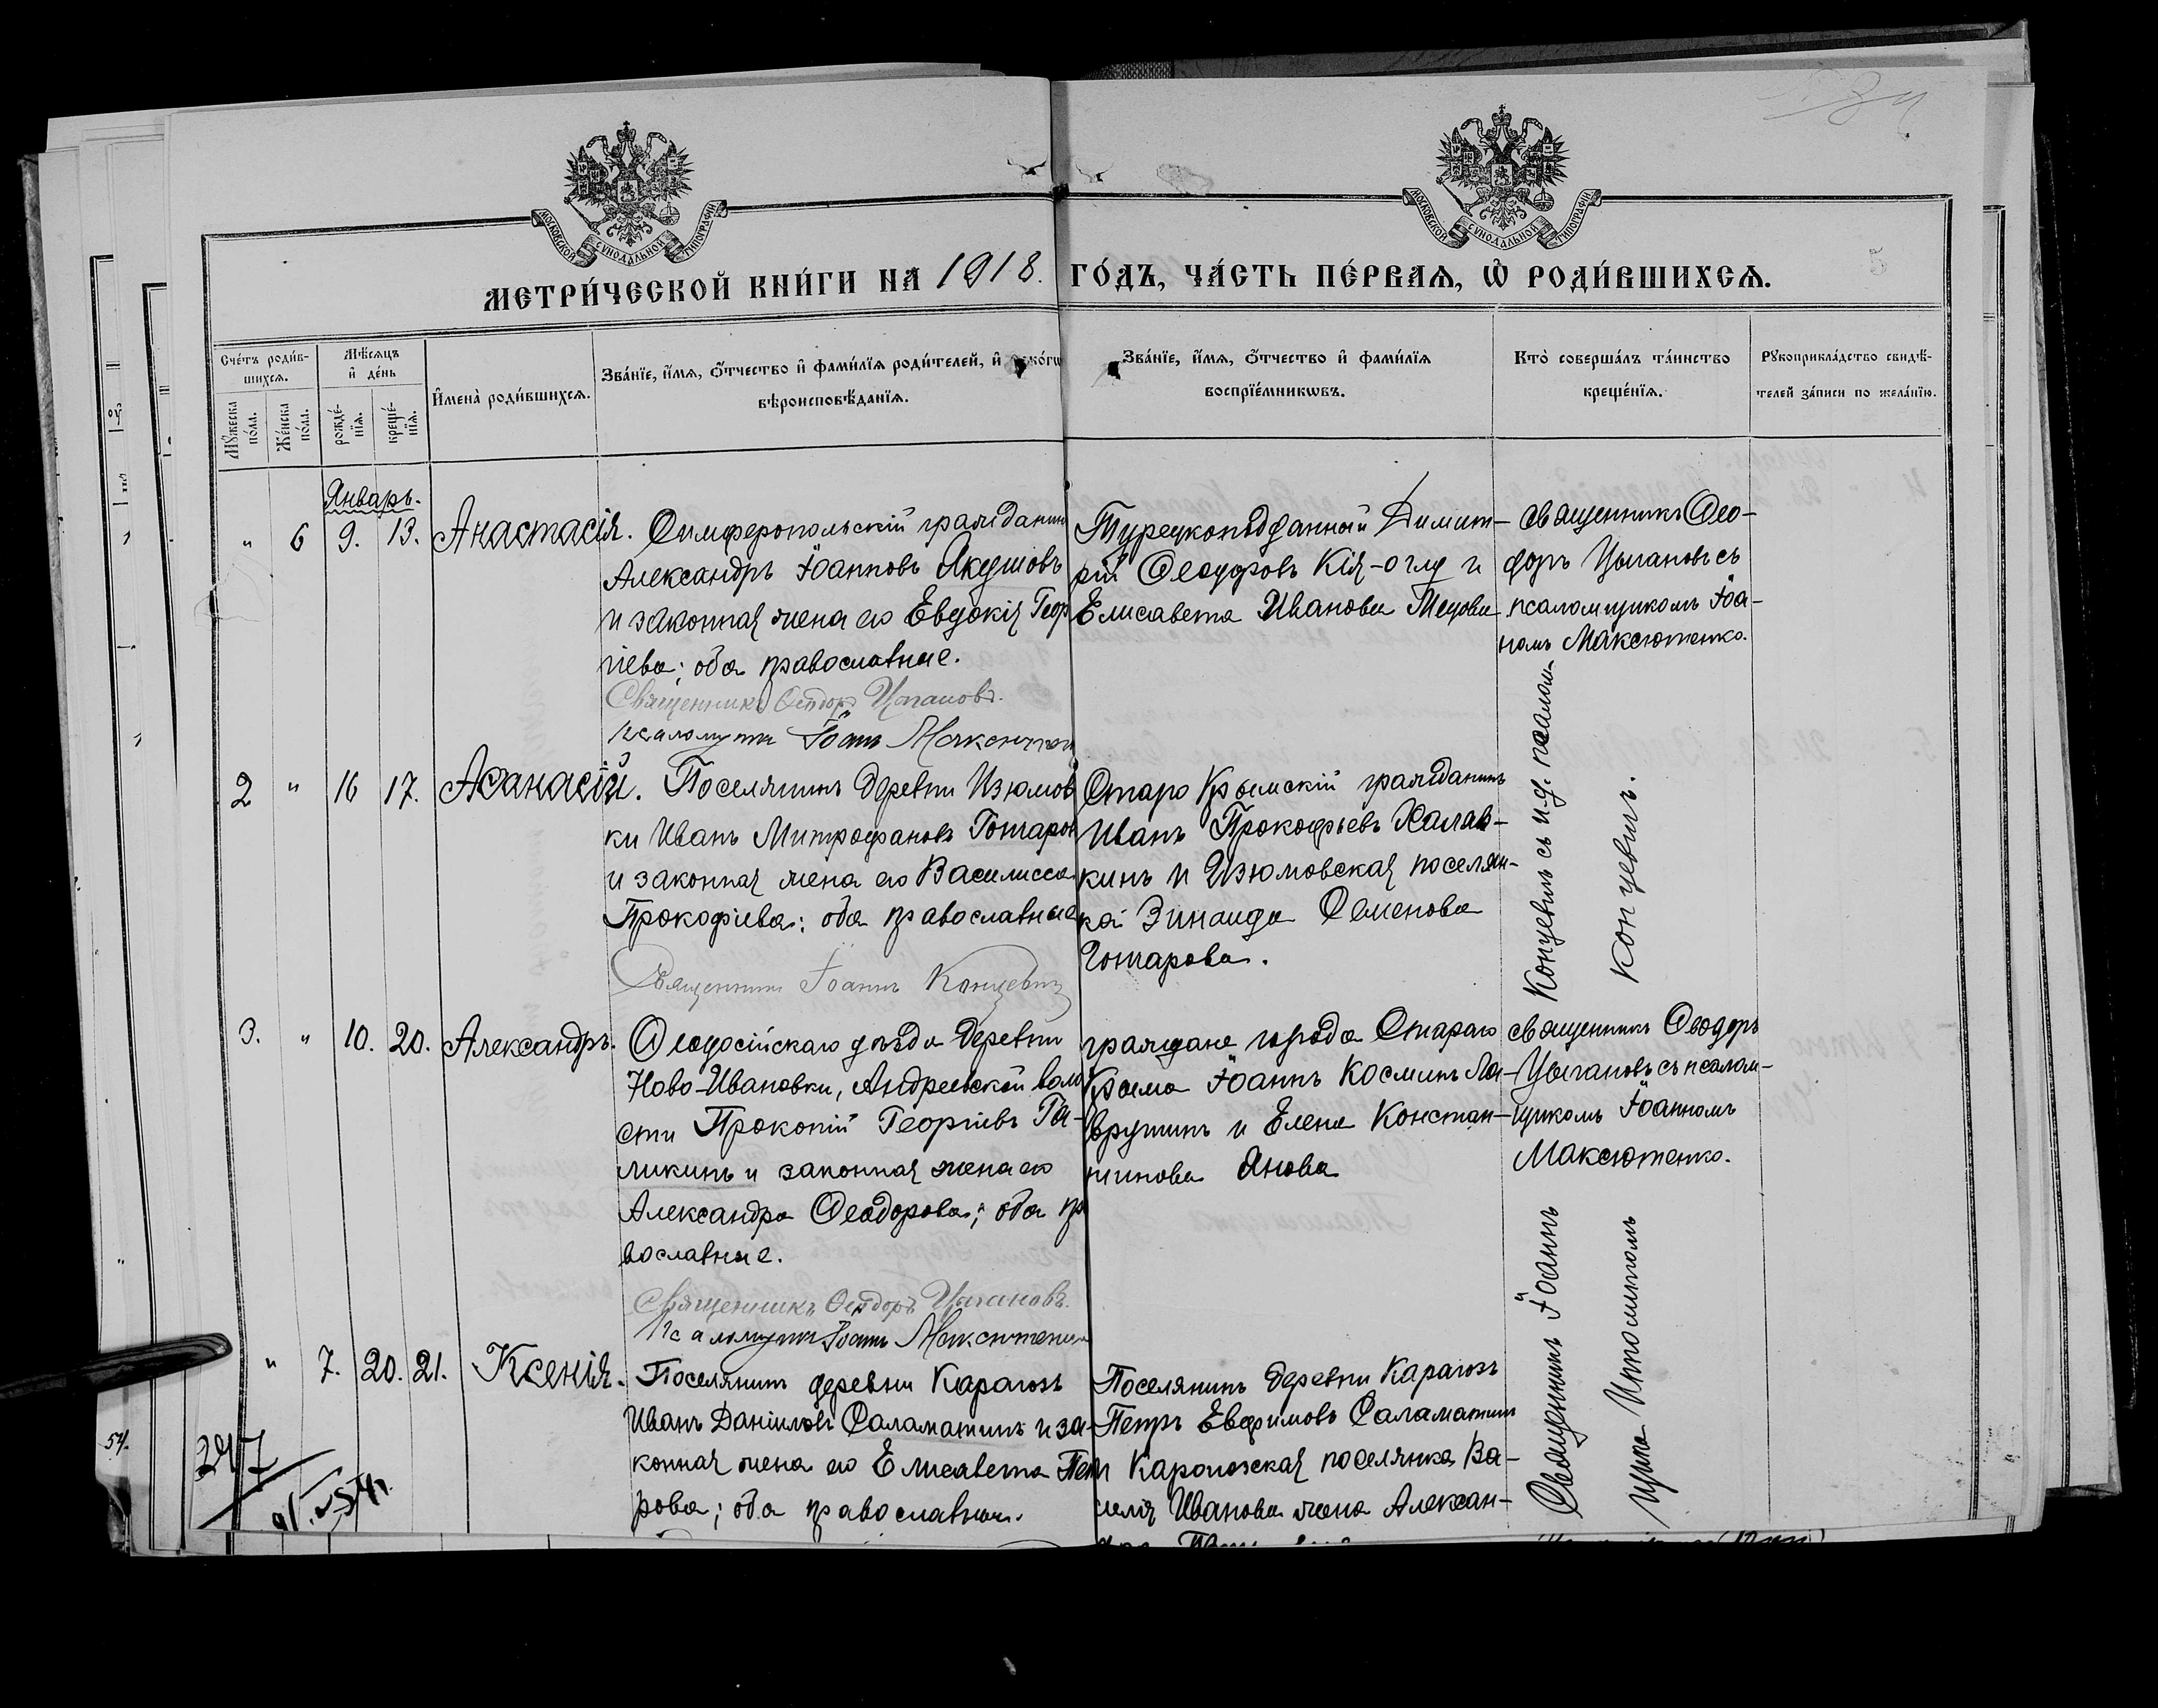 МОСКОВСКОЙ СѴНОДАЛЬНОЙ ТИПОГРАФІИ
МОСКОВСКОЙ СѴНОДАЛЬНОЙ ТИПОГРАФІИ
МЕТРИ́ЧЕСКОЙ КНИ́ГИ НА 1918. ГО́ДЪ, ЧА́СТЬ ПЕ́РВАѦ, Ѡ҆ РОДИ́ВШИХСѦ.
5
Сче́тъ роди́в-
шихсѧ.
Мꙋ́жеска по́ла.
Же́нска по́ла.
Мѣ́сяцъ
и҆ де́нь
рожде́-
нїѧ.
креще́-
нїѧ.
И҆мена̀ роди́вшихсѧ.
Зва́нїе, и҆́мѧ, ѻ҆́тчество и҆ фами́лїѧ роди́телей, и҆ како́гѡ
вѣроисповѣ́данїѧ.
Зва́нїе, и҆́мѧ, ѻ҆́тчество и҆ фами́лїѧ
воспрїе́мникѡвъ.
Кто̀ соверша́лъ та́инство
креще́нїѧ.
Рꙋкоприкла́дство свидѣ́-
телей за́писи по жела́нїю.
Январь.
" 6 9. 13. Анастасія.
Симферопольскій гражданин
Александръ Іоанновъ Якушовъ
и законная жена его Евдокія Геор
гіева; оба православные.
Священникъ Ѳеодоръ Цыгановъ.
Іоаннъ
Турецкоподданный Димит-
рій Ѳеодоровъ Кія-оглу и
Елисавета Иванова
священникъ Ѳео-
доръ Цыгановъ съ
псаломщикомъ Іоа-
номъ Максютенко.
2 " 16 17. Аѳанасій.
Поселянинъ деревни Изюмов
ки Иванъ Митрофановъ Гонтаров
и законная жена его Василисса
Прокофіева; оба православные
Священникъ Іоаннъ Концевич
Старо Крымскій гражданинъ
Иванъ Прокофьевъ Халав-
кинъ и Изюмовская поселян-
ка Зинаида Семенова
Гонтарова.
Концевичъ съ и.д. псалом-
Концевичъ.
3. " 10. 20. Александръ.
Ѳеодосійскаго уѣзда деревни
Ново-Ивановки, Андреевской воло
сти Прокопій Георгіевъ Га-
ликинъ и законная жена его
Александра Ѳеодорова; оба пра
вославные.
Священникъ Ѳеодоръ Цыгановъ.
Іоаннъ Максютенко
граждане города Стараго
Крыма Іоаннъ Косминъ Ла-
врутинъ и Елена Констан-
тинова Янова
священникъ Ѳеодоръ
Цыгановъ съ псалом-
щикомъ Іоанномъ
Максютенко.
" 7. 20. 21. Ксенія.
Поселянинъ деревни Карагозъ
Иванъ Даніиловъ Саламатинъ и за-
конная жена его Елисавета Пет
рова; оба православные.
Поселянинъ деревни Карагозъ
Петръ Евфимовъ Саламатинъ
и Карагозская поселянка Ва-
Иванова жена Алексан-
Священникъ Іоаннъ
щика Ипполитомъ
347
54.